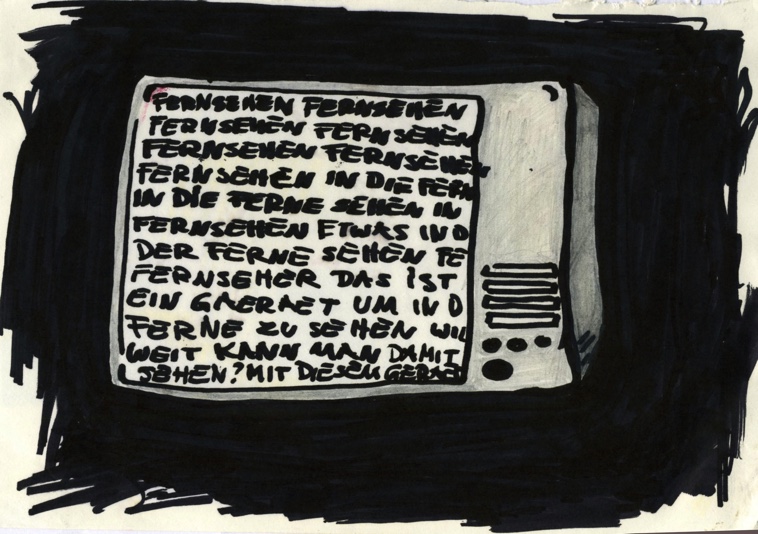 FERNSEHEN FERNSEHEN
FERNSEHEN FERNSEHEN
FERNSEHEN FERNSEHEN
FERNSEHEN IN DIE FERN
IN DIE FERNE SEHEN IN
FERNSEHEN ETWAS IN D
DER FERNE SEHEN FE
FERNSEHER DAS IST
EIN GAERAET UM IN D
FERNE ZU SEHEN WI
WEIT KANN MAN DAMIT
SEHEN? MIT DIESEM GERAE